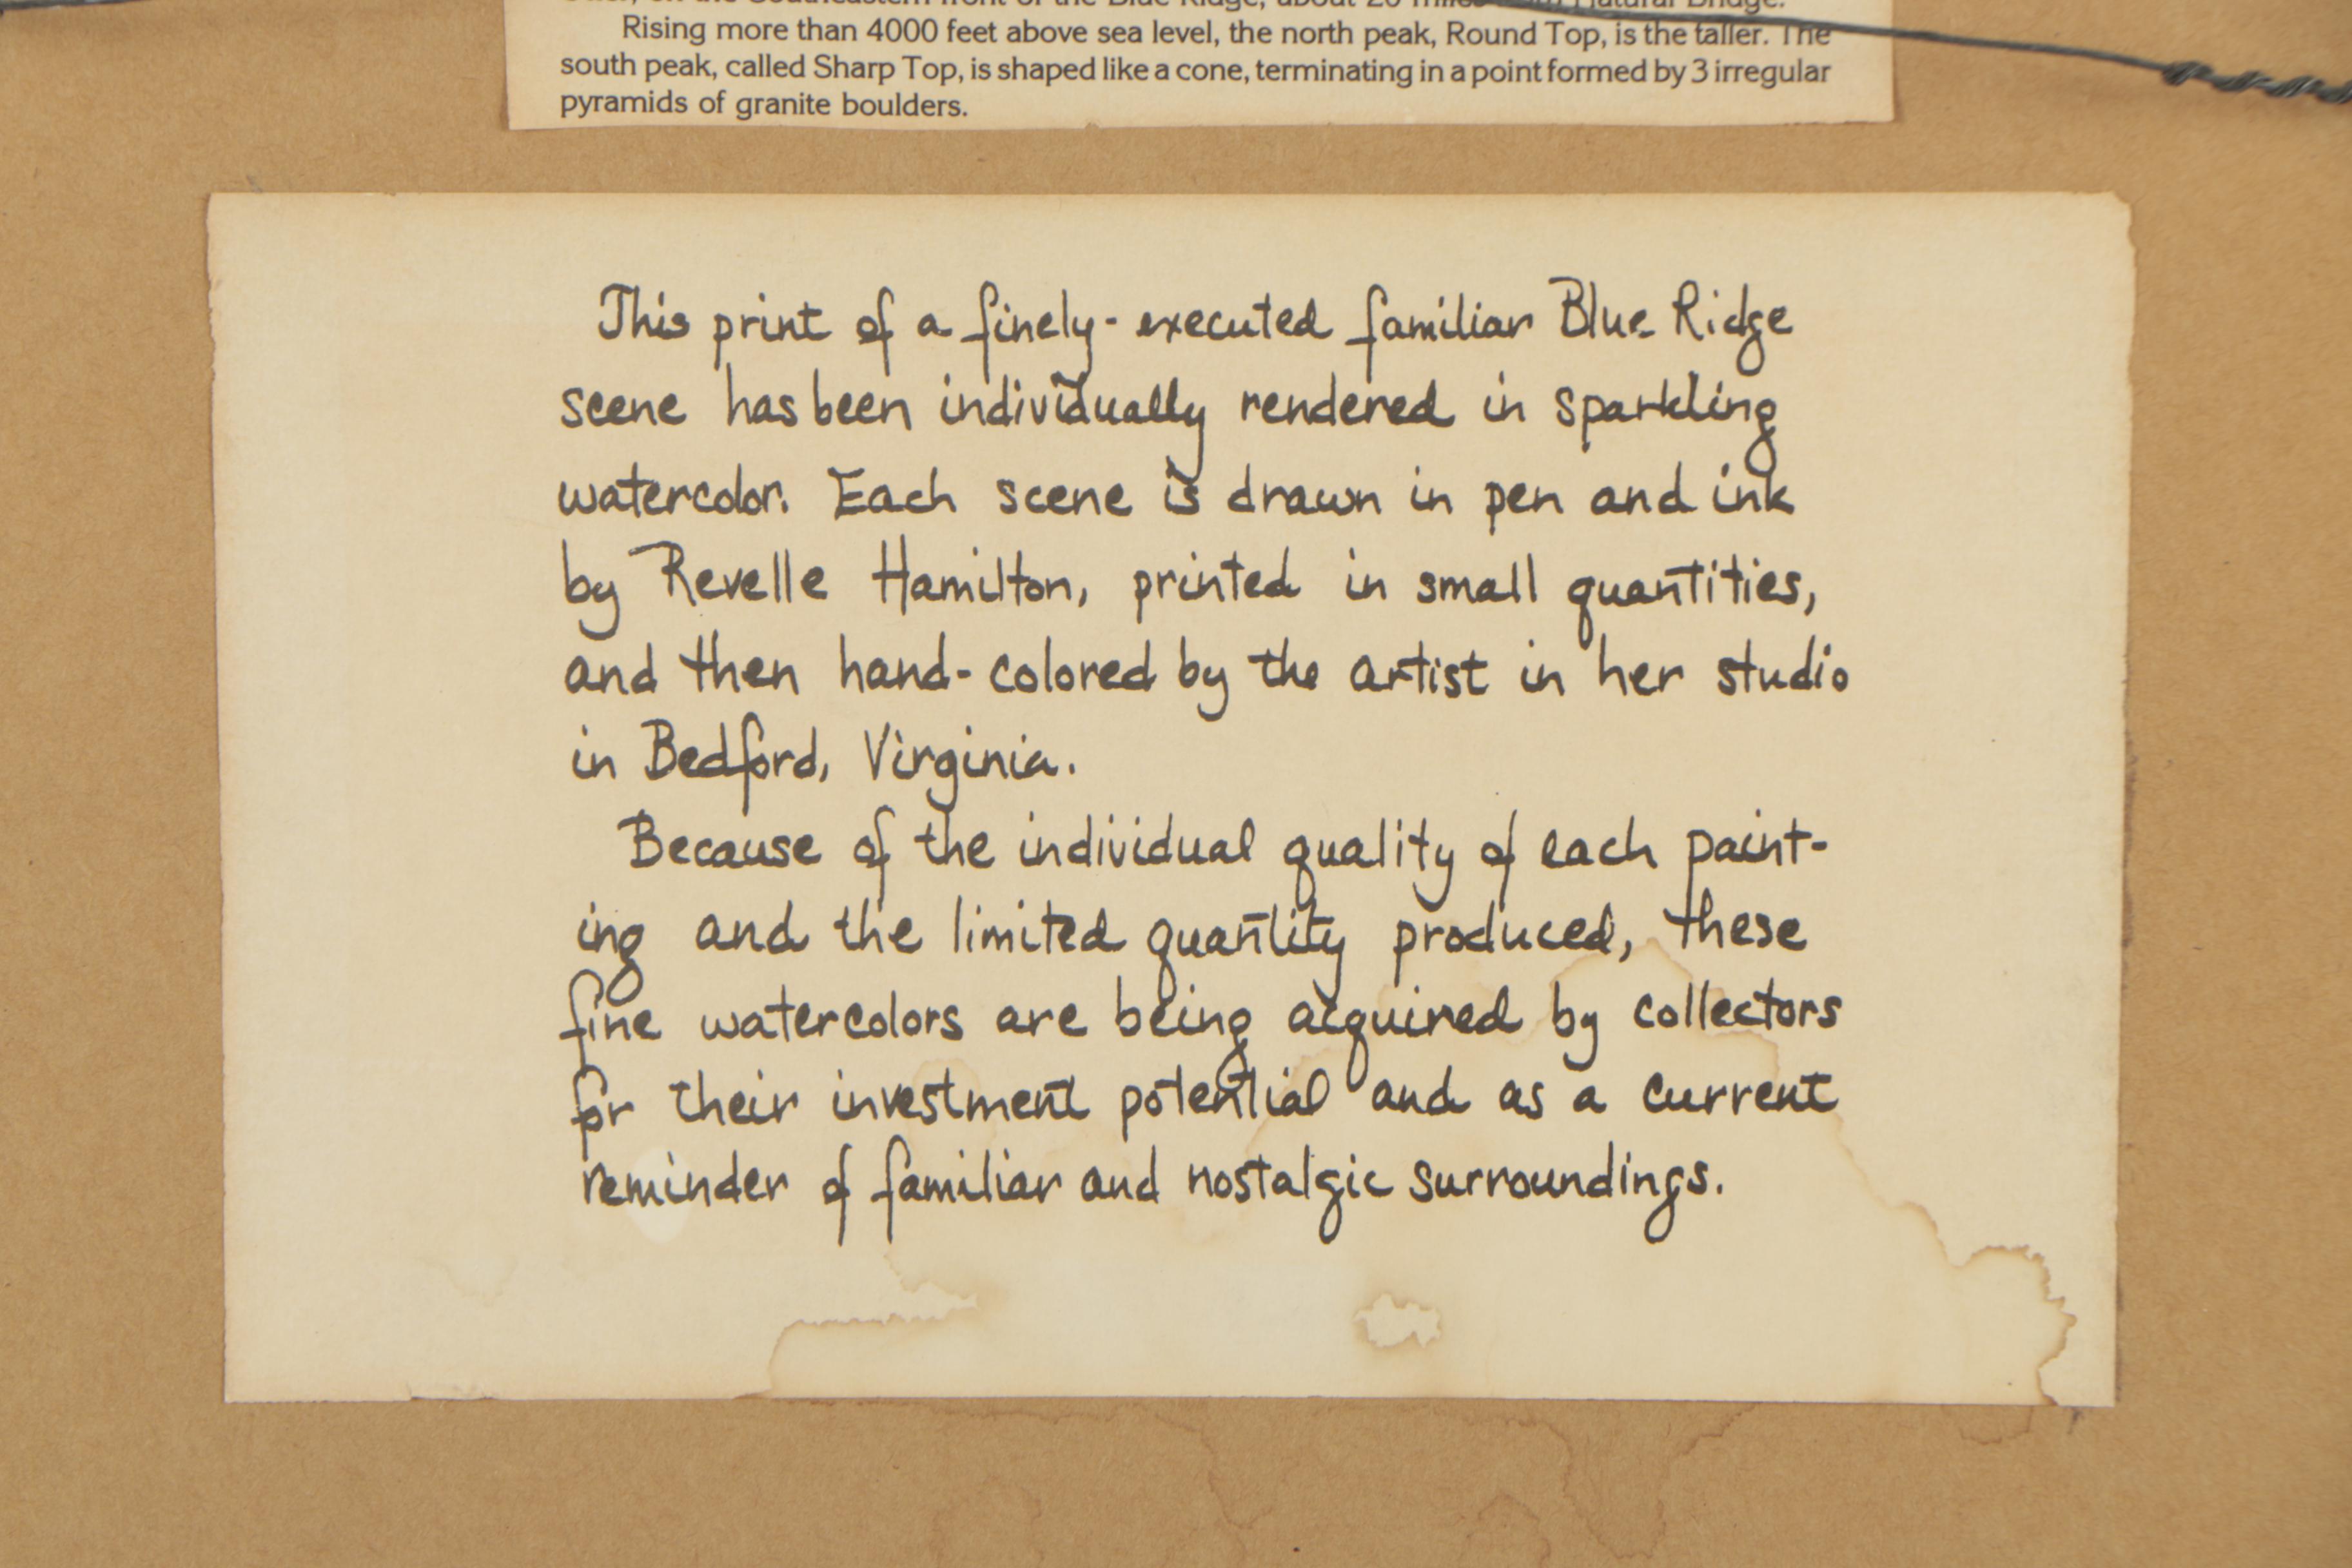 on the Southeastern front of the Blue Ridge, about 20 miles from Natural Bridge.
Rising more than 4000 feet above sea level, the north peak, Round Top, is the taller. The
south peak, called Sharp Top, is shaped like a cone, terminating in a point formed by 3 irregular
pyramids of granite boulders.
This print of a finely-executed familiar Blue Ridge
scene has been individually rendered in sparkling
watercolor. Each scene is drawn in pen and ink
by Revelle Hamilton, printed in small quantities,
and then hand-colored by the artist in her studio
in Bedford, Virginia.
Because of the individual quality of each paint-
ing and the limited quantity produced, these
fine watercolors are being acquired by collectors
for their investment potential and as a current
reminder of familiar and nostalgic surroundings.